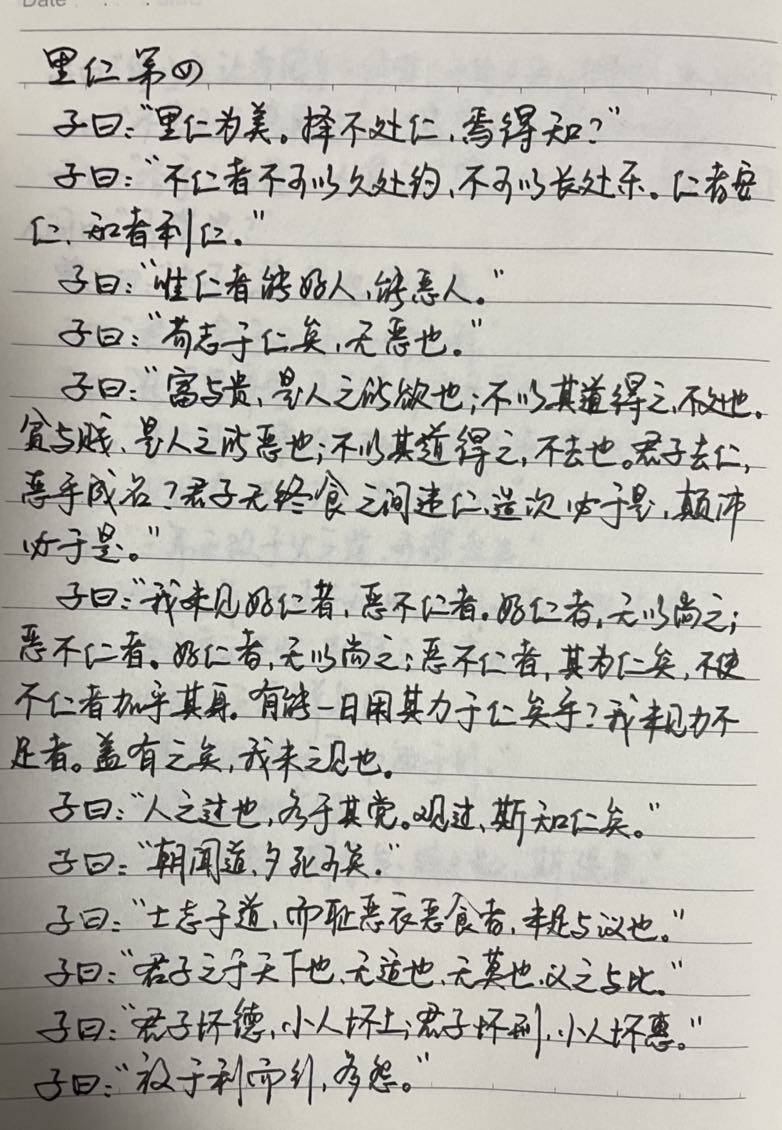 Date
里仁第四
子曰：“里仁为美。择不处仁，焉得知？”
子曰：“不仁者不可以久处约，不可以长处乐。仁者安
仁，知者利仁。”
子曰：“惟仁者能好人，能恶人。”
子曰：“苟志于仁矣，无恶也。”
子曰：“富与贵，是人之所欲也；不以其道得之，不处也。
贫与贱，是人之所恶也；不以其道得之，不去也。君子去仁，
恶乎成名？君子无终食之间违仁，造次必于是，颠沛
必于是。”
子曰：“我未见好仁者，恶不仁者。好仁者，无以尚之；
恶不仁者。好仁者，无以尚之；恶不仁者，其为仁矣，不使
不仁者加乎其身。有能一日用其力于仁矣乎？我未见力不
足者。盖有之矣，我未之见也。
子曰：“人之过也，各于其党。观过，斯知仁矣。”
子曰：“朝闻道，夕死可矣。”
子曰：“士志于道，而耻恶衣恶食者，未足与议也。”
子曰：“君子之于天下也，无适也，无莫也，义之与比。”
子曰：“君子怀德，小人怀土；君子怀刑，小人怀惠。”
子曰：“放于利而行，多怨。”